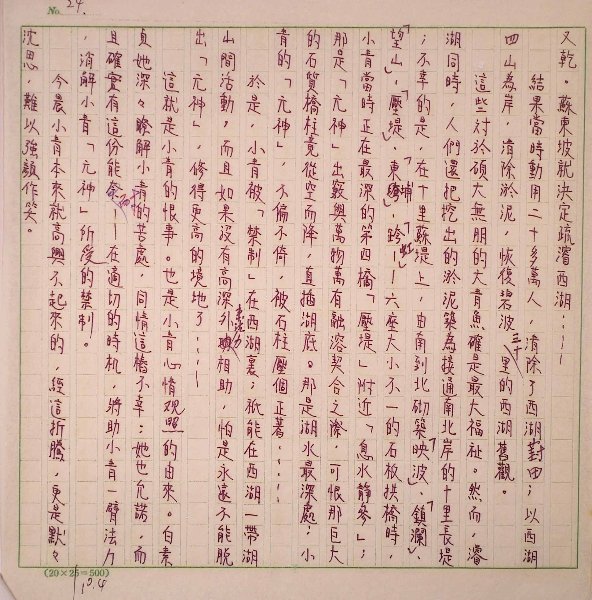 No. 24.
又乾。蘇東坡就決定疏濬西湖……
結果當時動用二十多萬人，清除了西湖葑田；以西湖
四山為岸，清除淤泥，恢復碧波三十里的西湖舊觀。
這些對於碩大無朋的大青魚確是最大福祉。然而，濬
湖同時，人們還把挖出的淤泥築為接通南北岸的十里長堤
；不幸的是，在十里蘇堤上，由南到北砌築映波」、「鎮瀾」、
「望山」、「壓堤」、「東浦」、「跨虹」──六座大小不一的石板拱橋時，
小青當時正在最深的第四橋「壓堤」附近「息水靜參」；
那是「元神」出竅與萬物萬有融溶契合之際，可恨那巨大
的石質橋柱竟從空而降，直插湖底。那是湖水最深處；小
青的「元神」，不偏不倚，被石柱壓個正著……
於是，小青被「禁制」在西湖裏；祇能在西湖一帶湖
山間活動，而且如果沒有高深外力相助，怕是永遠不能脫
出「元神」，修得更高的境地了……
這就是小青的恨事。也是小青心情觀照的由來。白素
貞她深々瞭解小青的苦處，同情這樁不幸；她也允諾，而
且確實有這份能──在適切的時机，將助小青一臂法力
，消解小青「元神」所受的禁制。
今晨小青本來就高興不起來的，經這折騰，更是默々
沈思，難以強顏作笑。
(20×25=500)
10.4